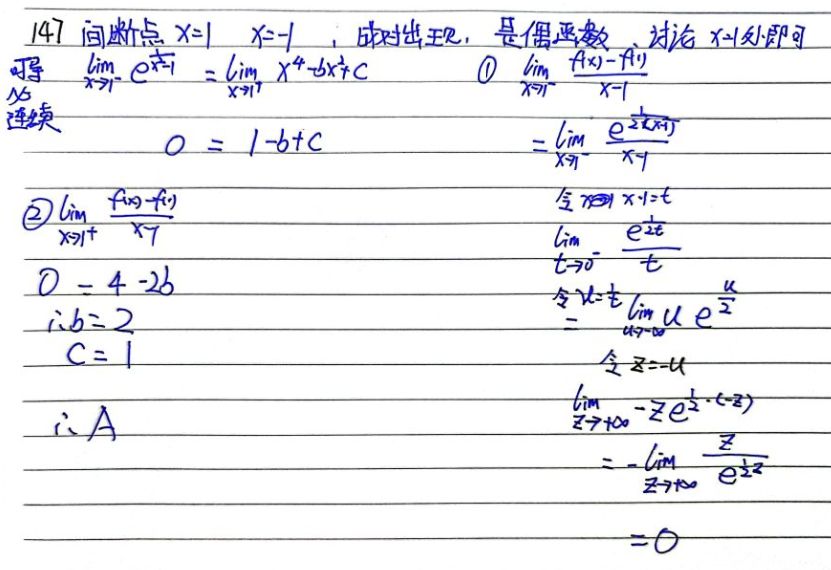 147 间断点 x=1 x=-1 , 成对出现, 是偶函数, 讨论 x=1处即可
可导必连续
lim_{x→1^-} e^{\frac{1}{x^2-1}} = lim_{x→1^+} x^4-bx^2+c
0 = 1-b+c
① lim_{x→1^-} \frac{f(x)-f(1)}{x-1}
= lim_{x→1^-} \frac{e^{\frac{1}{2(x-1)}}}{x-1}
令 x-1=t
lim_{t→0^-} \frac{e^{\frac{1}{2t}}}{t}
令 u=\frac{1}{t}
= lim_{u→-∞} u e^{\frac{u}{2}}
令 z=-u
lim_{z→+∞} -z e^{\frac{1}{2}·(-z)}
= -lim_{z→+∞} \frac{z}{e^{\frac{1}{2}z}}
=0
② lim_{x→1^+} \frac{f(x)-f(1)}{x-1}
0 = 4-2b
∴b=2
c=1
∴A